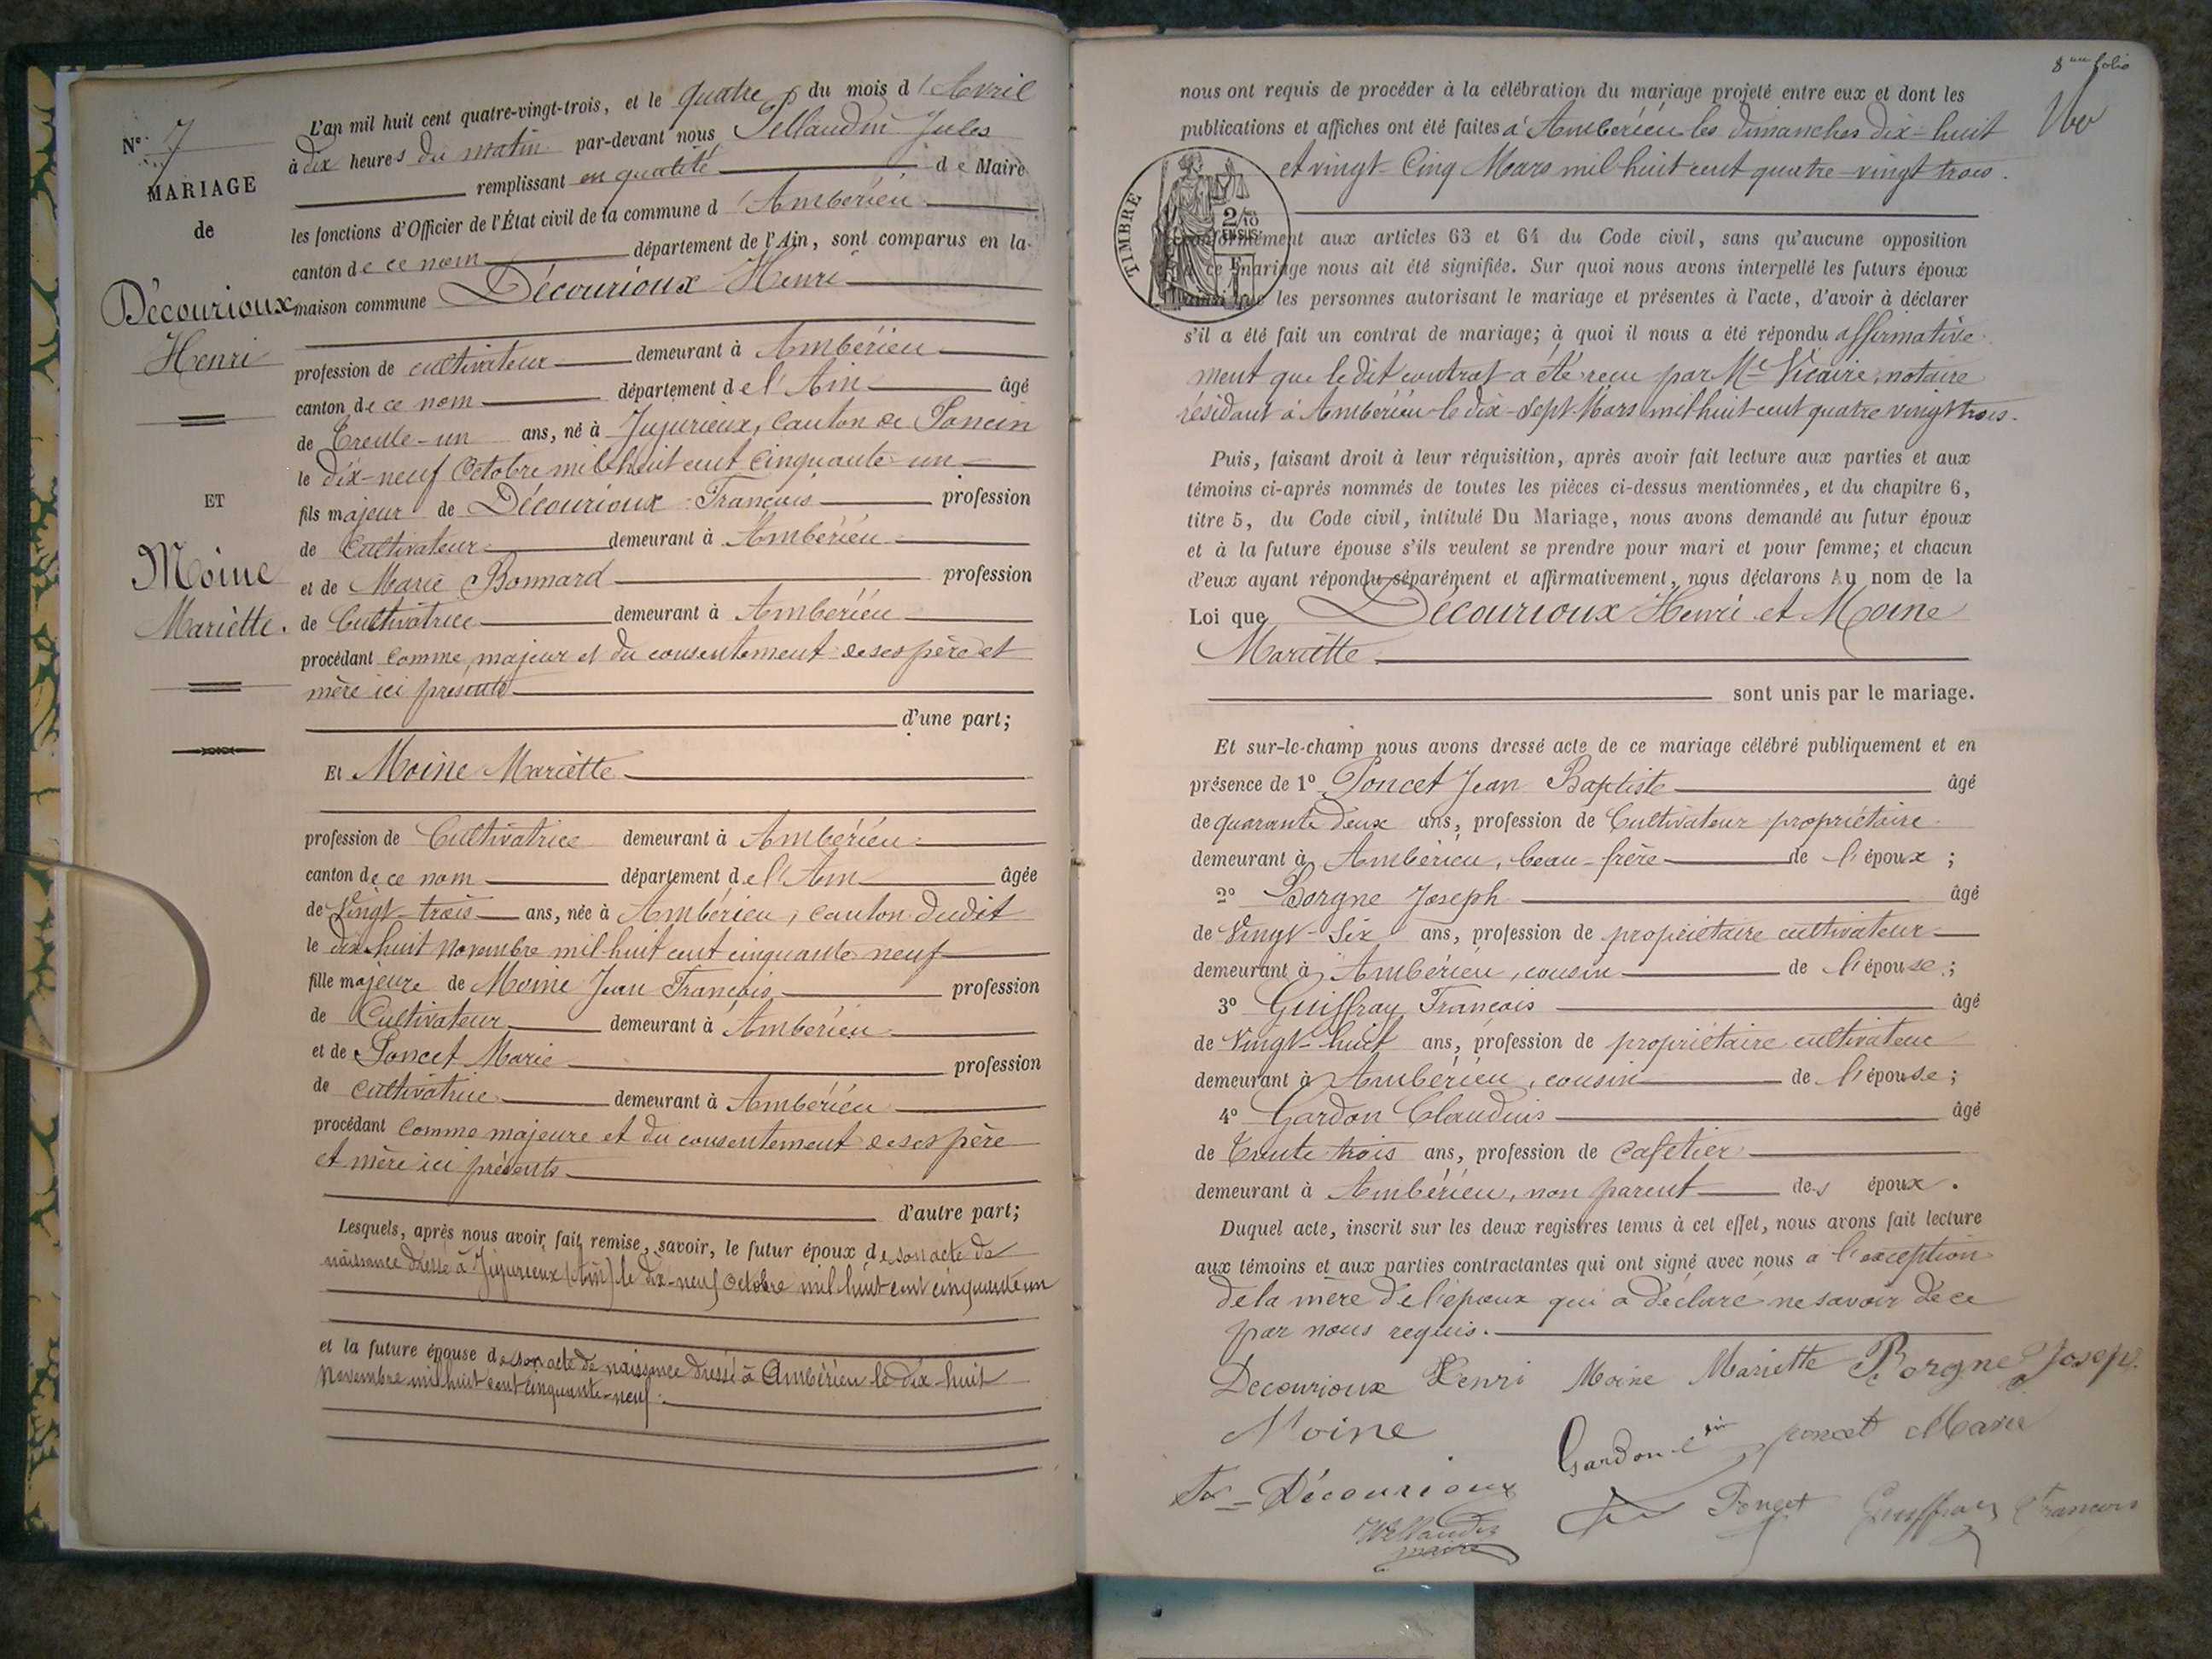 N° 7
MARIAGE
de
Décourioux
Henri
ET
Moine
Mariette.
L'an mil huit cent quatre-vingt-trois, et le quatre du mois d'Avril
à dix heures du matin par-devant nous Pellaudin Jules
remplissant en qualité de Maire
les fonctions d'Officier de l'État civil de la commune d'Ambérieu
canton de ce nom département de l'Ain, sont comparus en la
maison commune Décourioux Henri
profession de cultivateur demeurant à Ambérieu
canton de ce nom département de l'Ain âgé
de Trente-un ans, né à Jujurieux, canton de Poncin
le dix-neuf Octobre mil huit cent cinquante-un
fils majeur de Décourioux François profession
de Cultivateur demeurant à Ambérieu
et de Marie Bonnard profession
de Cultivatrice demeurant à Ambérieu
procédant comme majeur et du consentement de ses père et
mère ici présents
d'une part;
Et Moine Mariette
profession de Cultivatrice demeurant à Ambérieu
canton de ce nom département de l'Ain âgée
de Vingt-trois ans, née à Ambérieu, canton dudit
le dix-huit Novembre mil huit cent cinquante neuf
fille majeure de Moine Jean François profession
de Cultivateur demeurant à Ambérieu
et de Poncet Marie profession
de cultivatrice demeurant à Ambérieu
procédant comme majeure et du consentement de ses père
et mère ici présents
d'autre part;
Lesquels, après nous avoir fait remise, savoir, le futur époux de son acte de
naissance dressé à Jujurieux (Ain) le dix-neuf Octobre mil huit cent cinquante un
et la future épouse de son acte de naissance dressé à Ambérieu le dix-huit
Novembre mil huit cent cinquante-neuf.
8me folio
nous ont requis de procéder à la célébration du mariage projeté entre eux et dont les
publications et affiches ont été faites à Ambérieu les dimanches dix-huit
et vingt-Cinq Mars mil huit cent quatre-vingt trois.
TIMBRE
2/10 EN SUS
conformément aux articles 63 et 64 du Code civil, sans qu'aucune opposition
à ce mariage nous ait été signifiée. Sur quoi nous avons interpellé les futurs époux
ainsi que les personnes autorisant le mariage et présentes à l'acte, d'avoir à déclarer
s'il a été fait un contrat de mariage; à quoi il nous a été répondu affirmative
ment que ledit contrat a été reçu par Me Vicaire, notaire
résidant à Ambérieu le dix-Sept Mars mil huit cent quatre vingt trois.
Puis, faisant droit à leur réquisition, après avoir fait lecture aux parties et aux
témoins ci-après nommés de toutes les pièces ci-dessus mentionnées, et du chapitre 6,
titre 5, du Code civil, intitulé Du Mariage, nous avons demandé au futur époux
et à la future épouse s'ils veulent se prendre pour mari et pour femme; et chacun
d'eux ayant répondu séparément et affirmativement, nous déclarons Au nom de la
Loi que Décourioux Henri et Moine
Mariette
sont unis par le mariage.
Et sur-le-champ nous avons dressé acte de ce mariage célébré publiquement et en
présence de 1° Poncet Jean Baptiste âgé
de quarante deux ans, profession de Cultivateur propriétaire
demeurant à Ambérieu, beau-frère de l'époux;
2° Borgne Joseph âgé
de Vingt-Six ans, profession de propriétaire cultivateur
demeurant à Ambérieu, cousin de l'épouse;
3° Guiffray François âgé
de Vingt-huit ans, profession de propriétaire cultivateur
demeurant à Ambérieu, cousin de l'épouse;
4° Gardon Claudius âgé
de Trente trois ans, profession de cafetier
demeurant à Ambérieu, non parent des époux.
Duquel acte, inscrit sur les deux registres tenus à cet effet, nous avons fait lecture
aux témoins et aux parties contractantes qui ont signé avec nous à l'exception
de la mère de l'époux qui a déclaré ne savoir de ce
par nous requis.
Decourioux Henri Moine Mariette Borgne Joseph
Moine Gardon poncet Marie
Décourioux Poncet Guiffray Francois
Pellaudin
maire